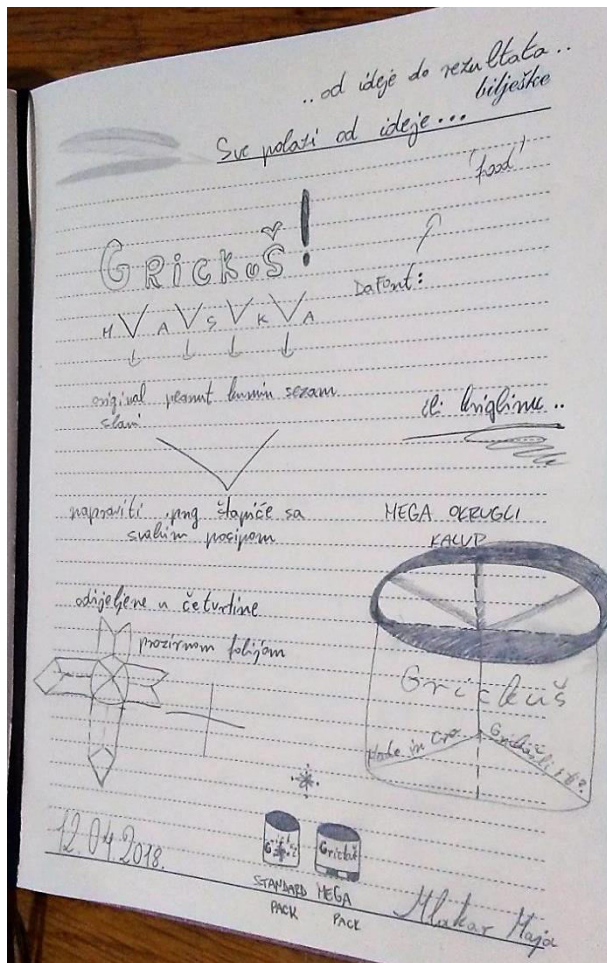 ..od ideje do rezultata..
bilješke
Sve polazi od ideje...
'food'
GRiCKuŠ!
DaFont:
M A S K A
original peanut kumin sezam
slani
ili kriglinu..
napraviti .png štapiće sa
svakim posipom
MEGA OKRUGLI
KALUP
odijeljene u četvrtine
prozirnom folijom
Grickuš
Made in Cro.
12.04.2018.
Grickuš
STANDARD
PACK
MEGA
PACK
Mlakar Maja